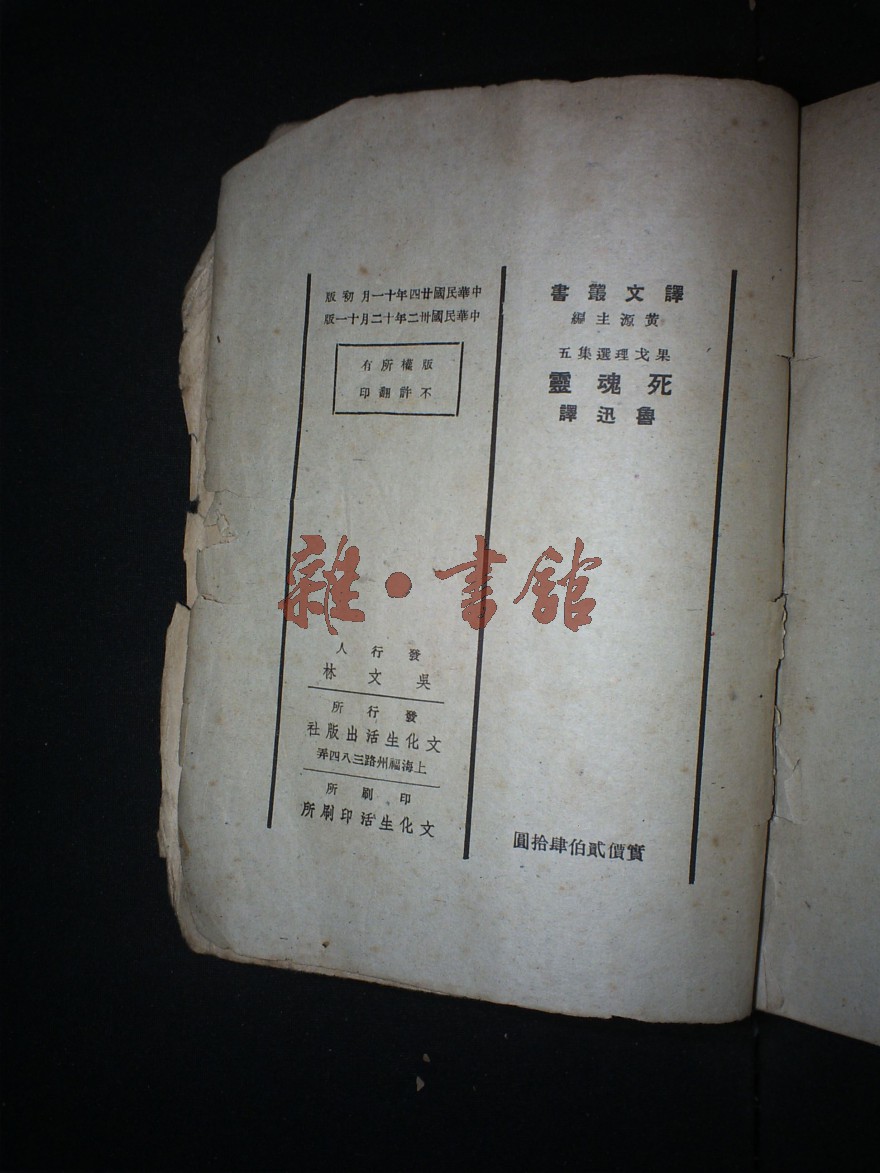 譯文叢書
黃源主編
果戈理選集五
死魂靈
魯迅譯
實價貳伯肆拾圓
中華民國廿四年十一月初版
中華民國卅二年十二月十一版
版權所有
不許翻印
發行人
吳文林
發行所
文化生活出版社
上海福州路三八四弄
印刷所
文化生活印刷所
雜·書館